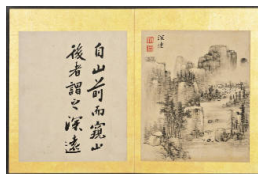 自山前而窺山
後者謂之深遠
深遠